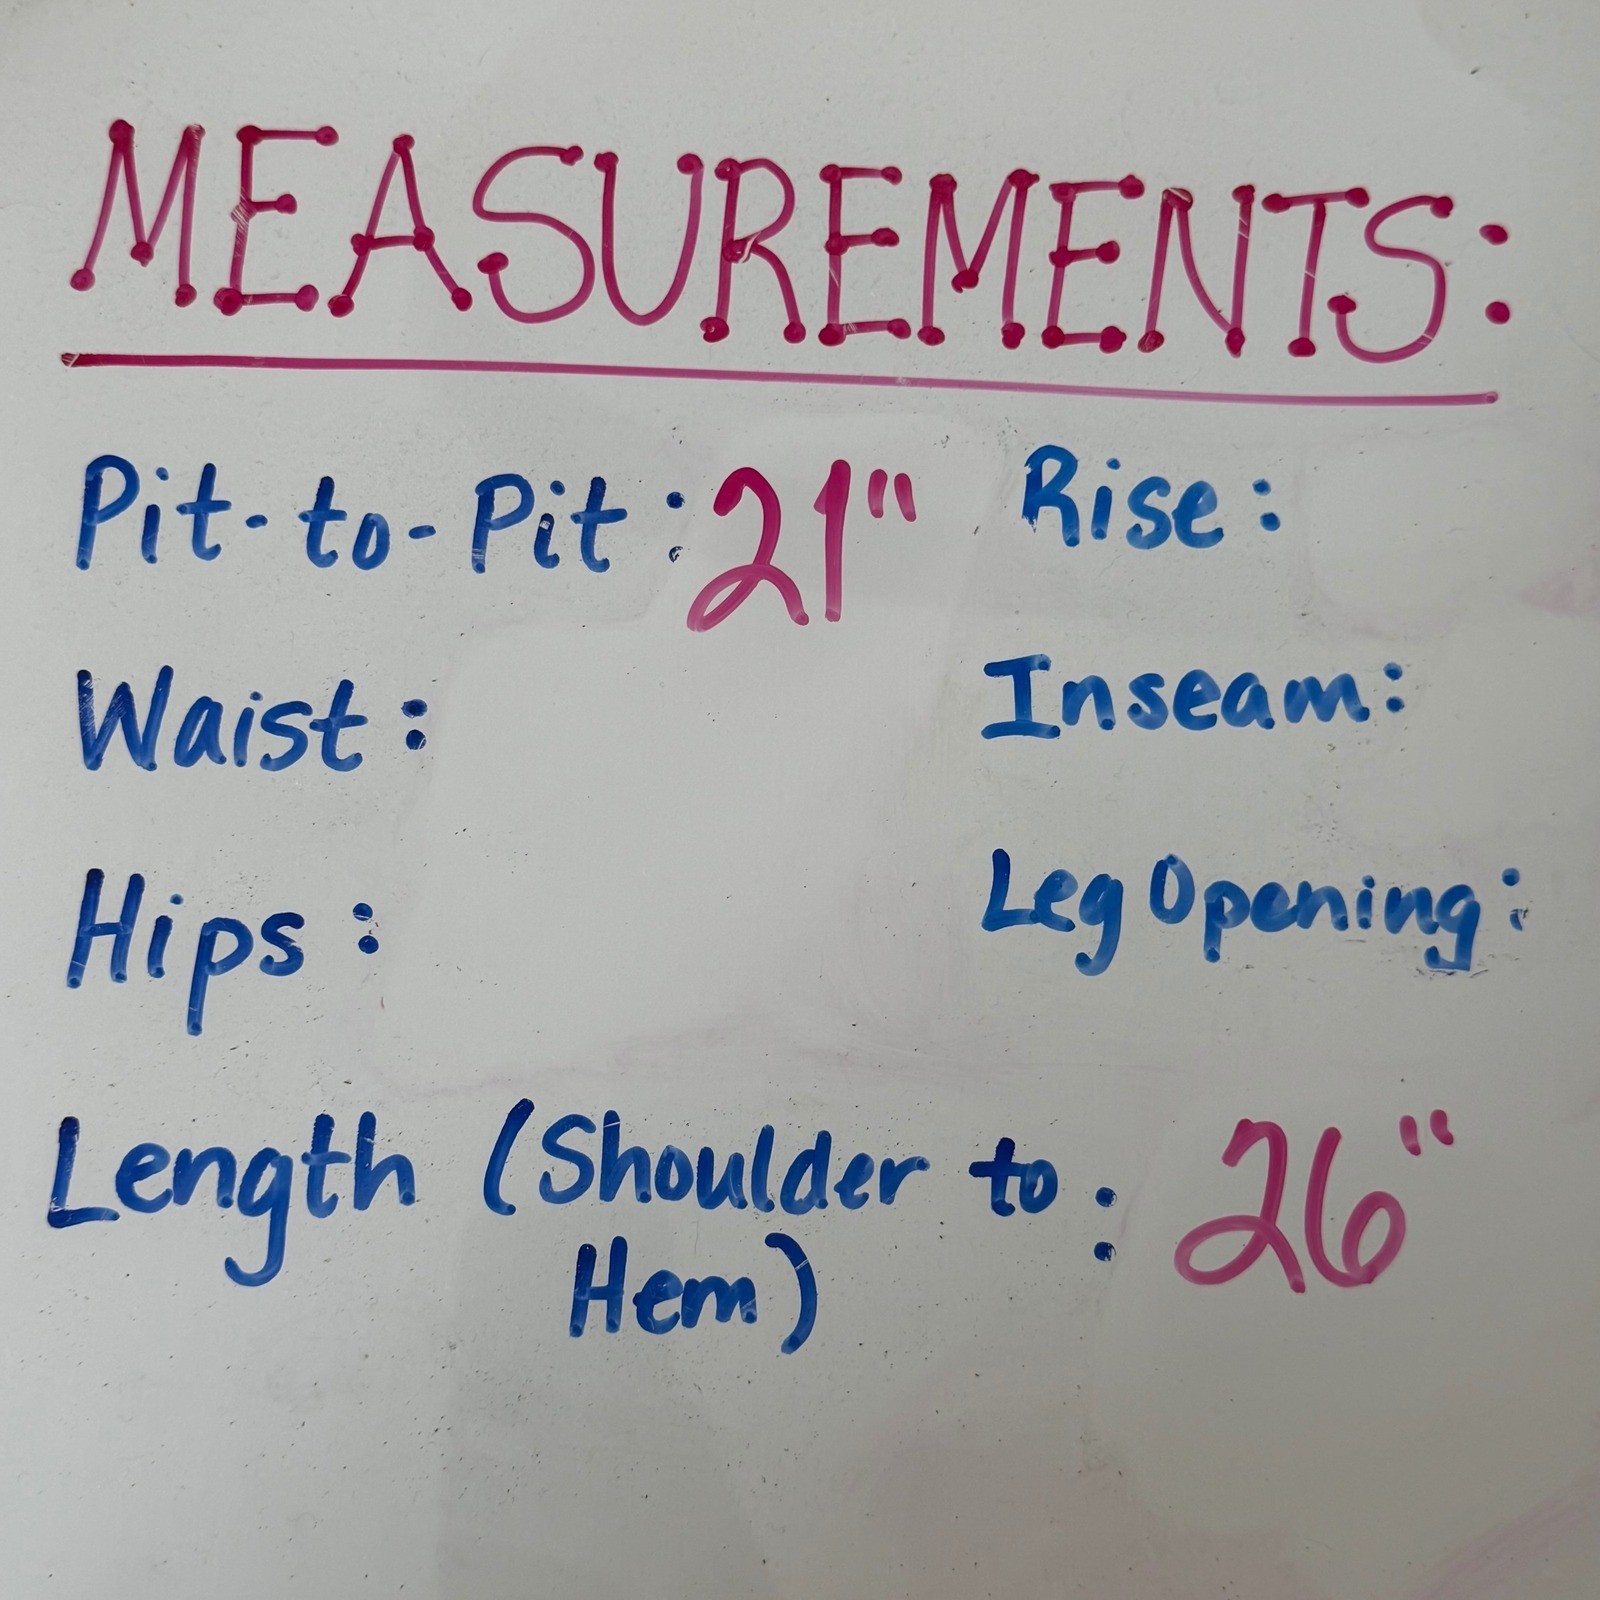 MEASUREMENTS:
Pit-to-Pit: 21" Rise:
Waist: Inseam:
Hips: Leg Opening:
Length (Shoulder to : 26"
Hem)